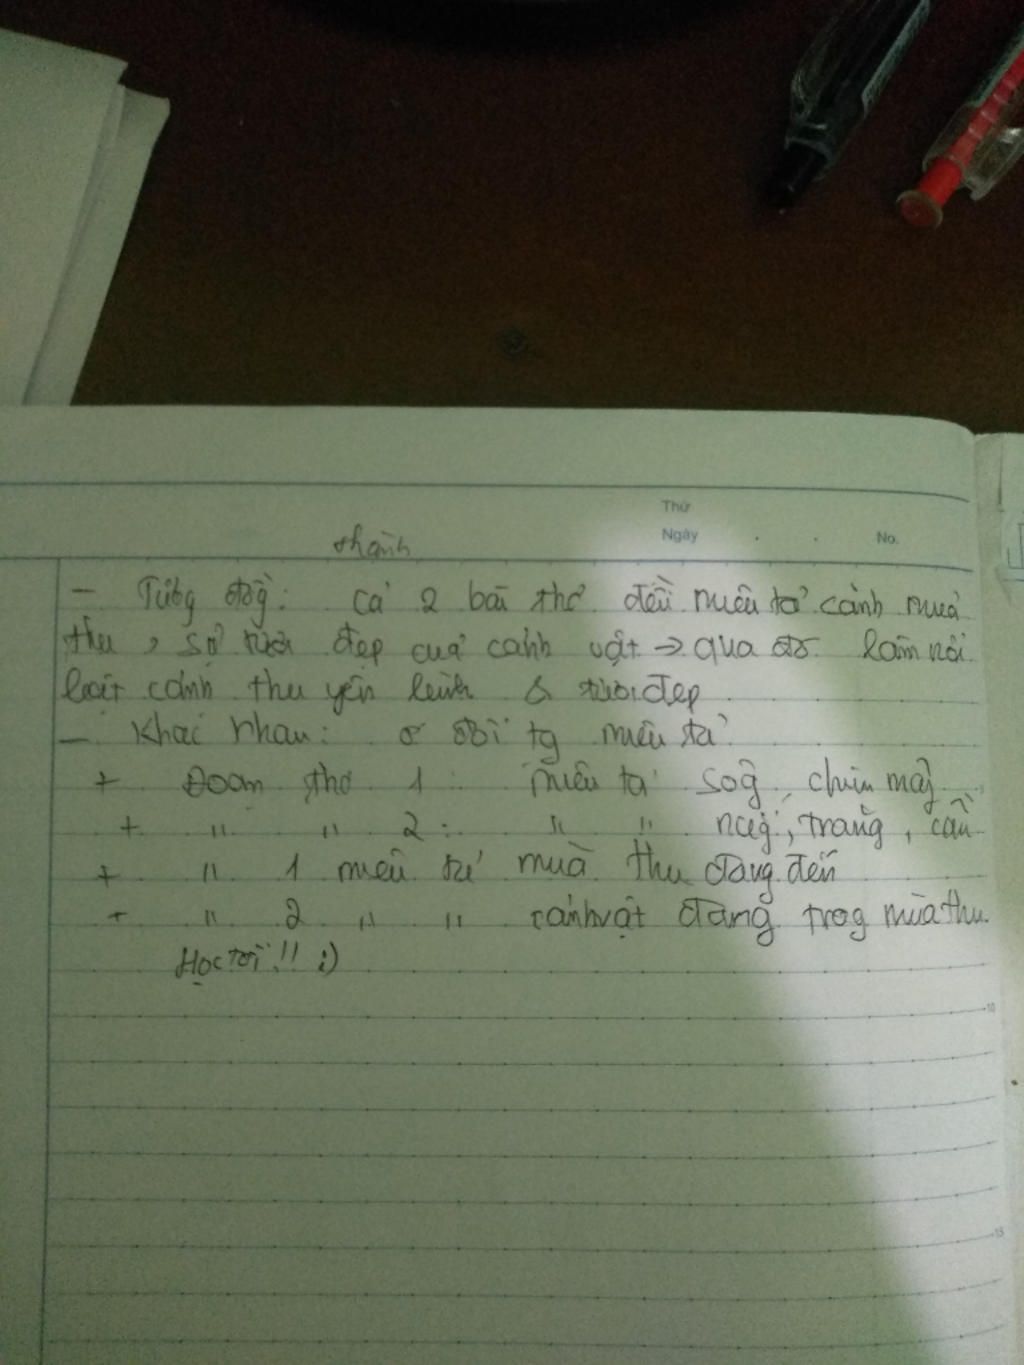 Thứ
Ngày No.
thành
- Tương đồg: cả 2 bài thơ đều miêu tả cảnh mùa
thu, sự tươi đẹp của cảnh vật → qua đó làm nổi
bật cảnh thu yên bình & tươi đẹp
- Khác nhau: ở đối tg miêu tả
+ Đoạn thơ 1: miêu tả sog, chim mây
+ " " 2: " " , trăng, cần
+ " 1 miêu tả mùa thu đang đến
+ " 2 " " cảnh vật đang trog mùa thu.
Học tốt!! :)
10
15